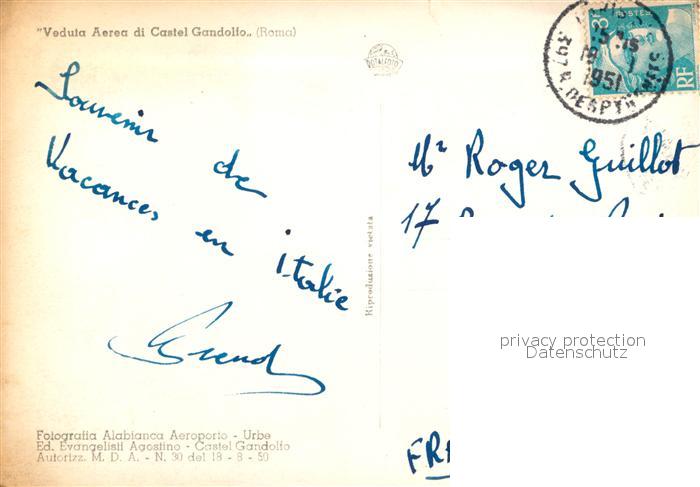 "Veduta Aerea di Castel Gandolfo„ (Roma)
Souvenir de
Vacances en italie
Mr Roger Guillot
17
Riproduzione vietata
privacy protection
Datenschutz
FRA
Fotografia Alabianca Aeroporto - Urbe
Ed. Evangelisti Agostino - Castel Gandolfo
Autorizz. M. D. A. - N. 30 del 18 - 8 - 50
3F
POSTES
RF
1951